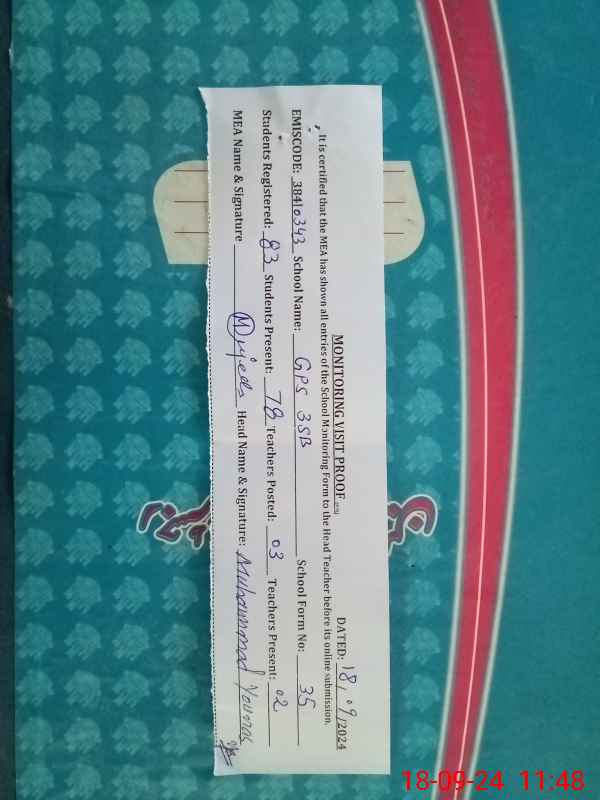 MONITORING VISIT PROOF
DATED: 18/09/2024
It is certified that the MEA has shown all entries of the School Monitoring Form to the Head Teacher before its online submission.
EMISCODE: 38410343 School Name: GPS 3SB School Form No: 35
Students Registered: 83 Students Present: 78 Teachers Posted: 03 Teachers Present: 02
MEA Name & Signature Head Name & Signature: Muhammad Younas
18-09-24 11:48